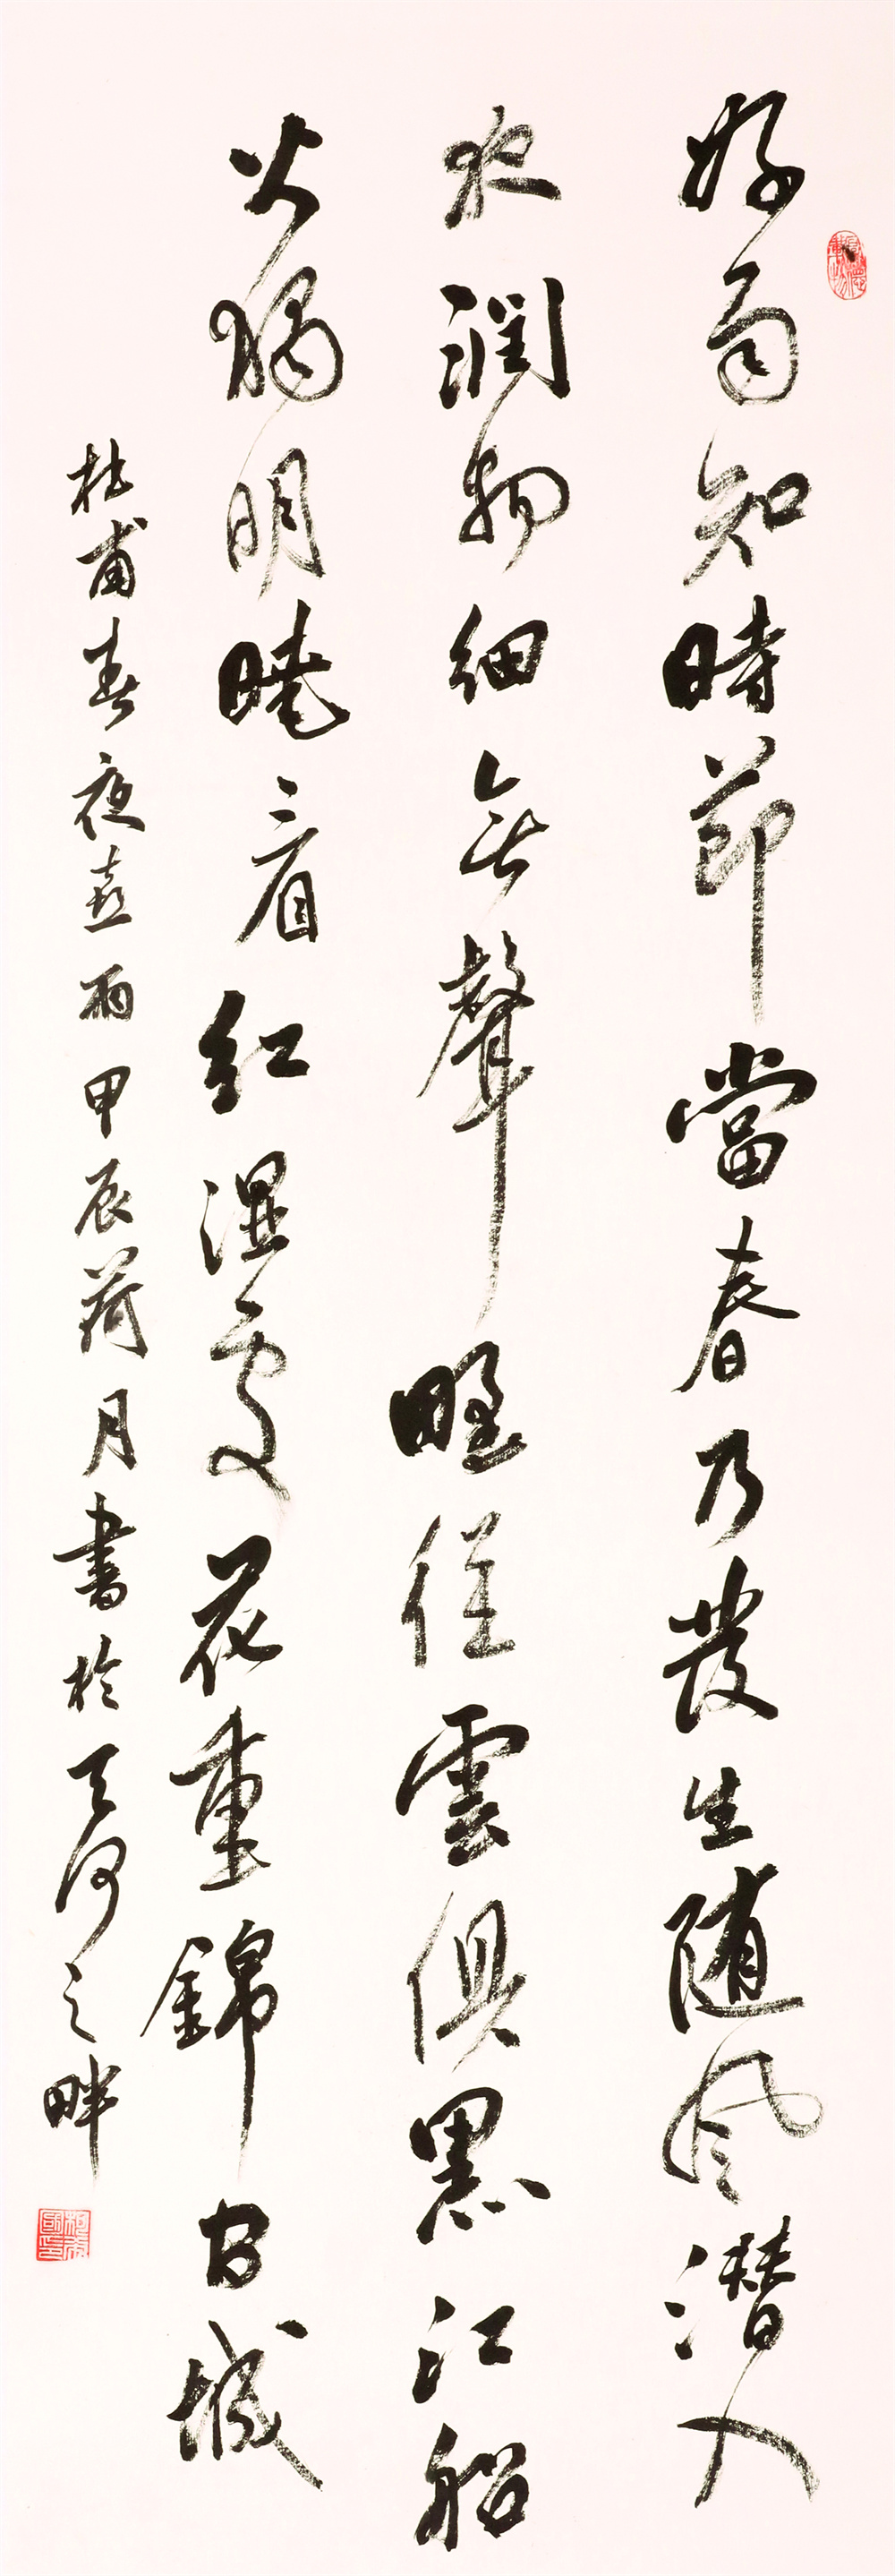 好雨知時節當春乃發生随風潛入
夜潤物细無聲野徑雲俱黑江船
火獨明曉看红濕處花重錦官城
杜甫春夜喜雨甲辰荷月書於天河之畔